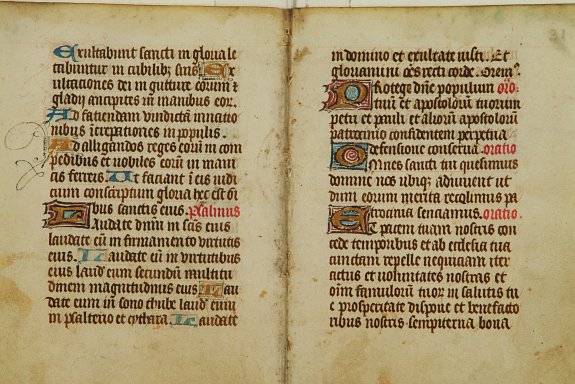 Exultabunt sancti in gloria le
tabuntur in cubilibꝫ suis Ex
ultaciones dei in gutture eorum ⁊
gladij ancipites in manibus eor.
Ad faciendam vindictā in nacio
nibus īcrepationes in populis.
Ad alligandos reges eorū in com
pedibus et nobiles eorū in mani
cis ferreis Ut faciant ī eis iudi
cium conscriptum gloria hec est oī
bus sanctis eius. psalmus
Laudate dnm̄ in scīs eius
laudate eū in firmamento virtutis
eius. Laudate eū in virtutibus
eius laud' eum secundū multitu
dinem magnitudinis eius Lau
date eum in sono thube laud' eum
in psalterio et cythara Laudate
31
in domino et exultate iusti. Et
gloriamini oēs recti corde. Orem̄
Protege dn̄e populum oro
tuū et apostolorū tuorum
petri et pauli et aliorū apostolorū
patrocinio confidentem perpetua
defensione conserua. oratio
Omnes sancti tui quesumus
domine nos ubiqꝫ adiuuent ut
dum eorum merita recolimus pa
trocinia senciamus. oratio.
Et pacem tuam nostris con
cede temporibus et ab ecclesia tua
cunctam repelle nequiciam iter
actus et voluntates nostras et
oīm famulorū tuor in salutis tu
e prosperitate dispone et benefacto
ribus nostris sempiterna bona